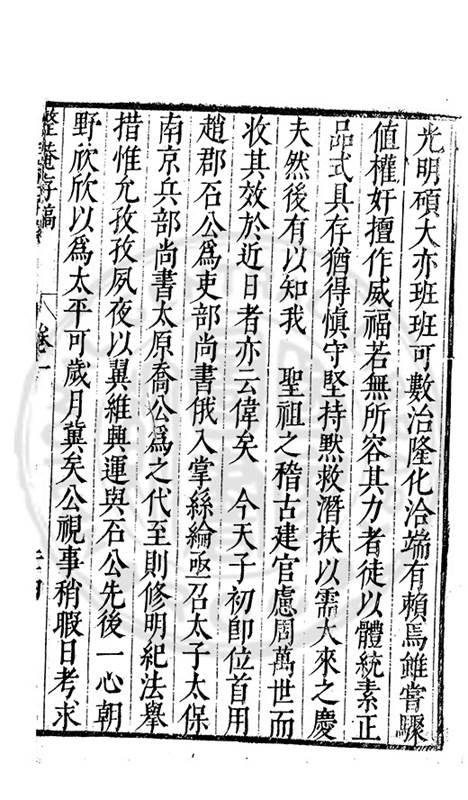 光明碩大亦班班可數治隆化洽端有賴焉雖嘗驟
值權奸擅作威福若無所容其力者徒以體統素正
品式具存猶得慎守堅持默救潛扶以需大來之慶
夫然後有以知我　聖祖之稽古建官慮周萬世而
收其效於近日者亦云偉矣　今天子初即位首用
趙郡石公為吏部尚書俄入掌絲綸亟召太子太保
南京兵部尚書太原喬公為之代至則修明紀法舉
措惟允孜孜夙夜以翼維興運與石公先後一心朝
野欣欣以為太平可歲月冀矣公視事稍暇日考求
整菴存稿　卷一